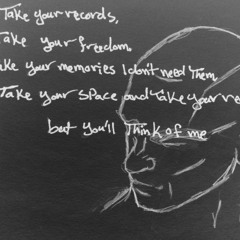 Take your records,
Take your freedom.
ake your memories I don't need them,
Take your space and take your re
but you'll think of me